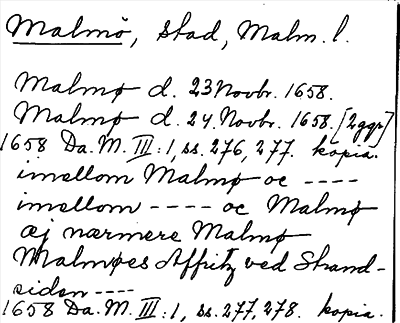 Malmö, stad, Malm. l.
Malmø d. 23 Novbr. 1658.
Malmø d. 24. Novbr. 1658. [2 ggr]
1658 Da. M. III: 1, ss. 276, 277. kopia.
imellom Malmø oc ----
imellom ---- oc Malmø
æj nærmere Malmø
Malmøes Affritz ved Strand-
siden ----
1658 Da. M. III: 1, ss. 277, 278. kopia.